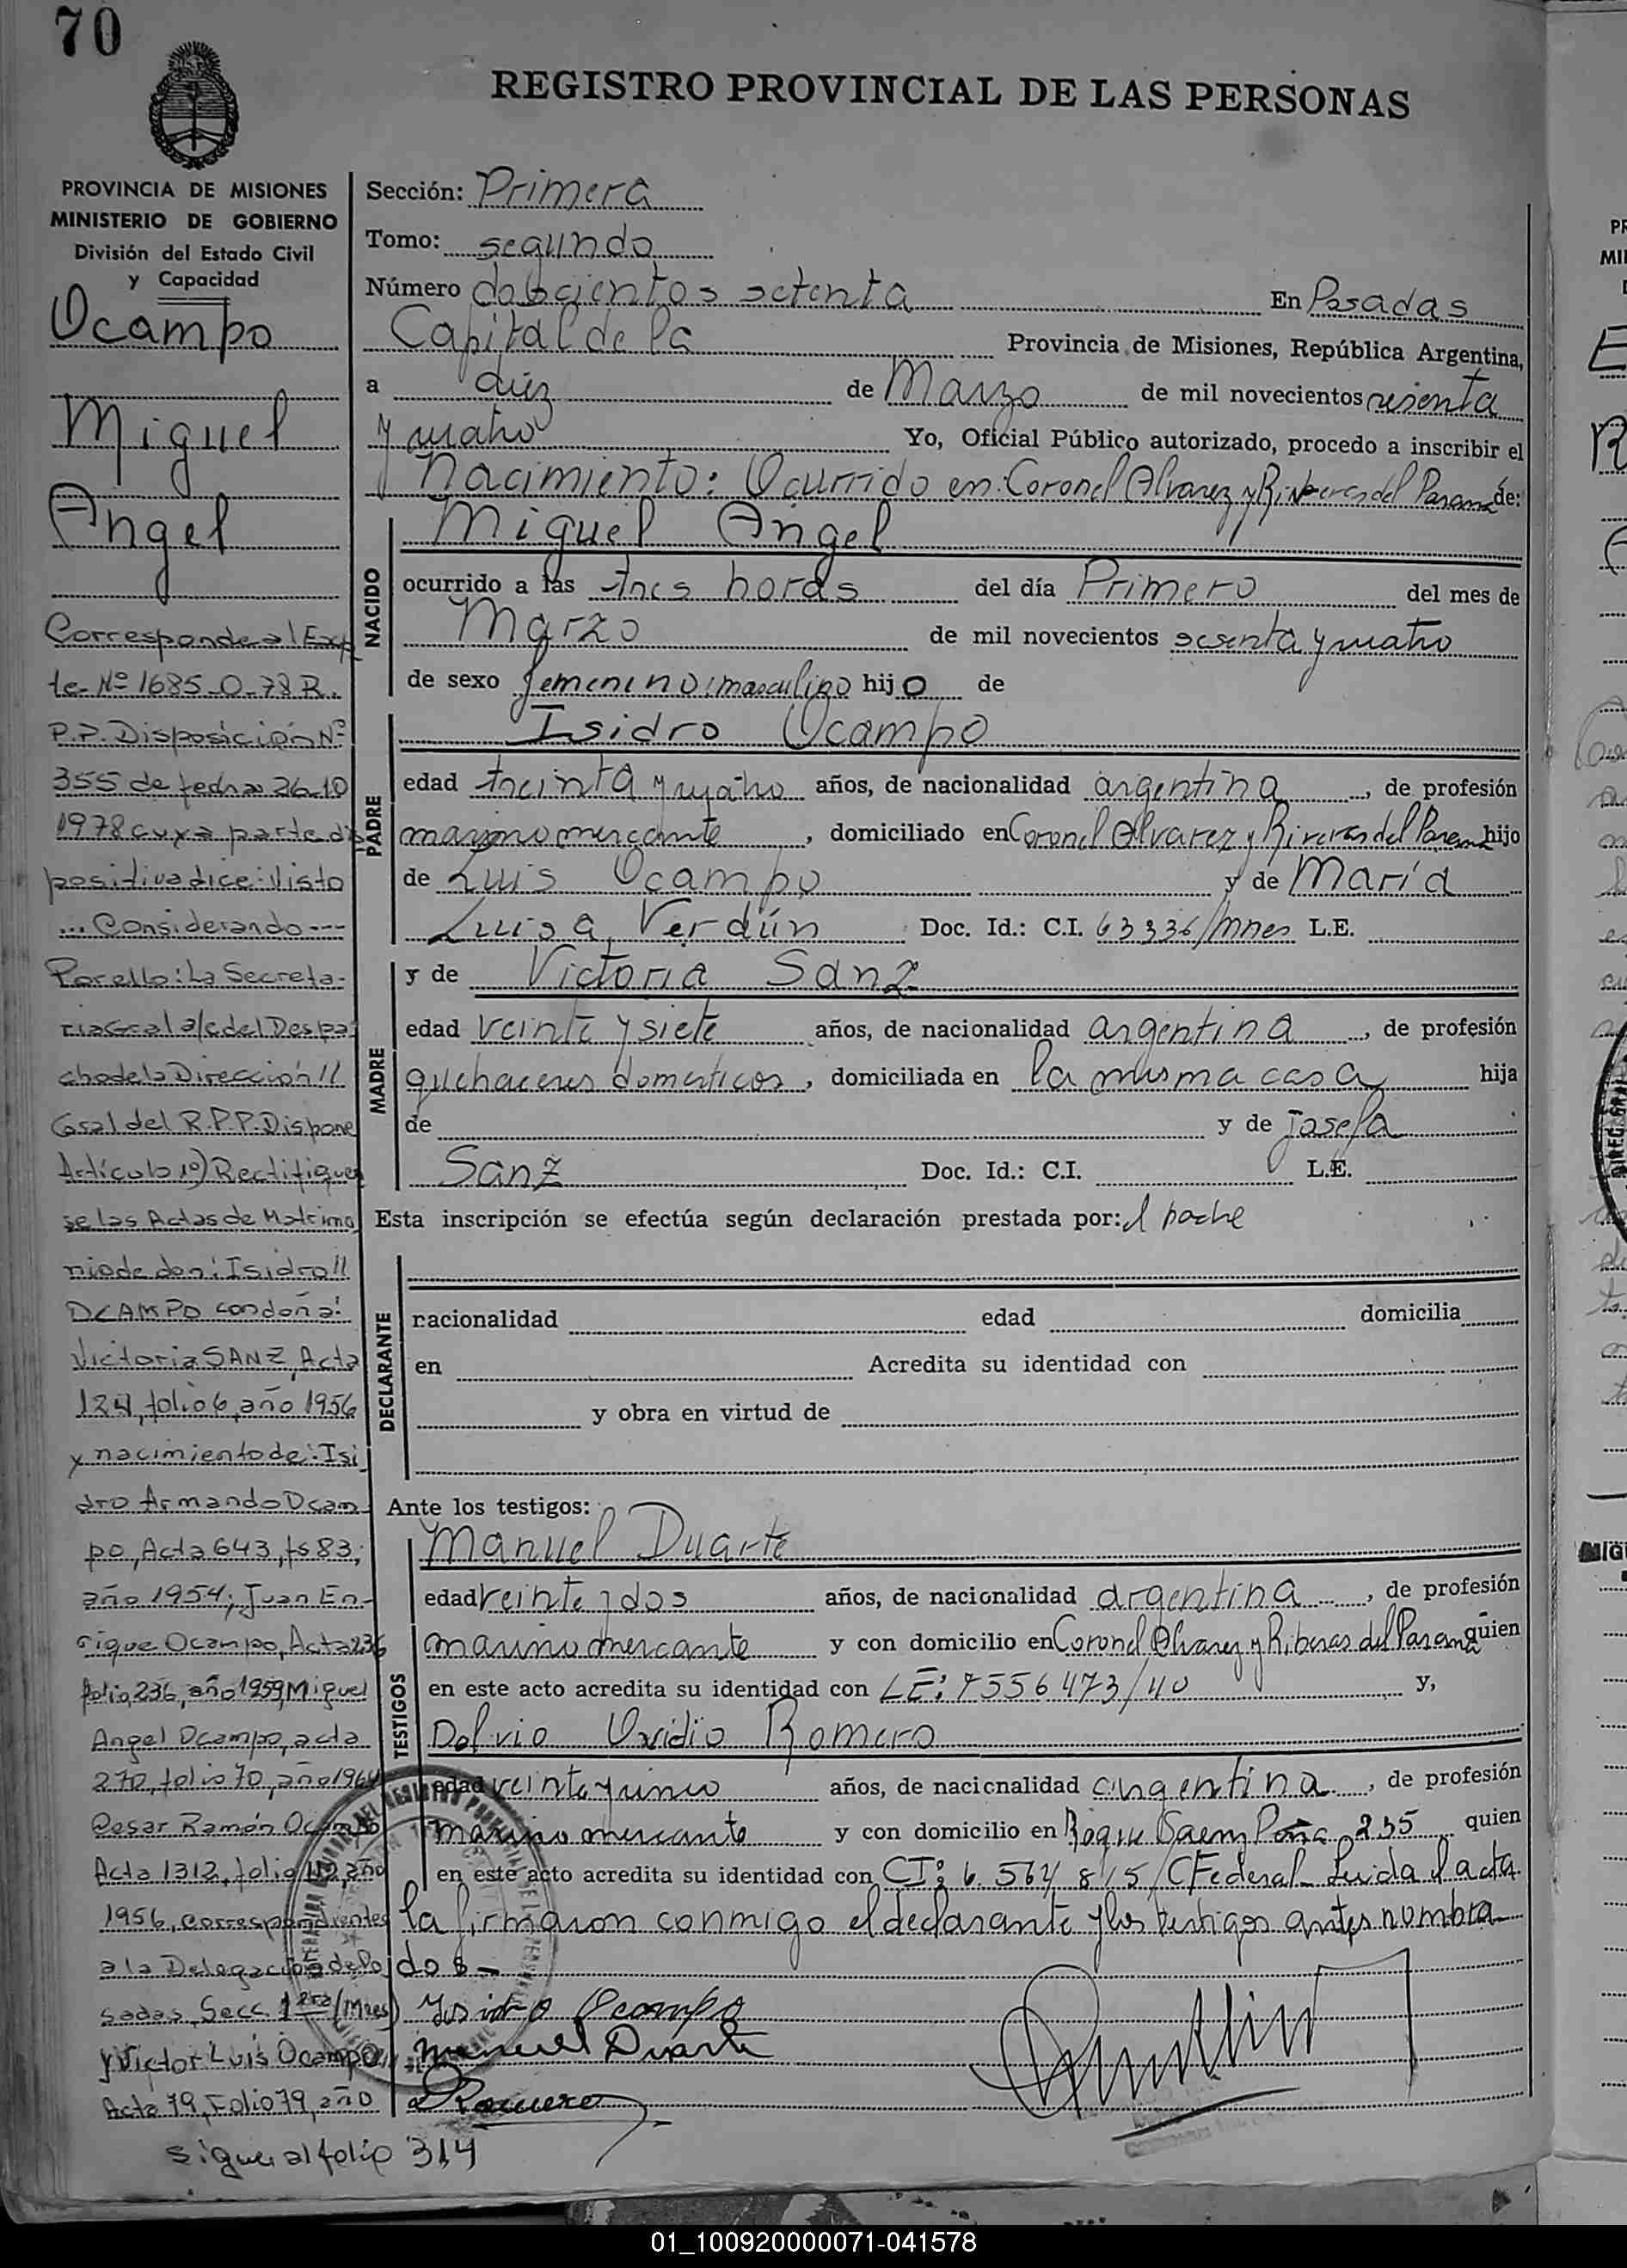 70
REGISTRO PROVINCIAL DE LAS PERSONAS
PROVINCIA DE MISIONES
MINISTERIO DE GOBIERNO
División del Estado Civil
y Capacidad
Ocampo
Miguel
Angel
Corresponde al Exp
te. Nº 1685-O-78 R.
P.P. Disposición Nº
355 de fecha 26-10
1978 cuya parte dis
positiva dice: Visto
... Considerando ---
Por ello: La Secreta-
ria Gral a/c del Despa
cho de la Dirección //
Gral del R.P.P. Dispone
Artículo 1º) Rectifíquen
se las Actas de Matrimo
nio de don: Isidro //
OCAMPO con doña:
Victoria SANZ, Acta
124, folio 6, año 1956
y nacimiento de: Isi
dro Armando Ocam
po, Acta 643, fs 83,
año 1954; Juan En-
rique Ocampo, Acta 236
folio, 236, año 1959, Miguel
Angel Ocampo, acta
270, folio 70, año 1964
Cesar Ramón Ocampo
Acta 1312, folio 112, año
1956, correspondientes
a la Delegación de Po
sadas, Secc. 1era (Mnes)
y Victor Luis Ocampo
Acta 79, Folio 79, año
sigue al folio 314
Sección: Primera
Tomo: segundo
Número doscientos setenta En Posadas
Capital de la Provincia de Misiones, República Argentina,
a diez de Marzo de mil novecientos sesenta
y cuatro Yo, Oficial Público autorizado, procedo a inscribir el
Nacimiento: Ocurrido en: Coronel Alvarez y Riveras del Paraná de:
NACIDO
Miguel Angel
ocurrido a las tres horas del día Primero del mes de
Marzo de mil novecientos sesenta y cuatro
de sexo femenino/masculino hijo de
PADRE
Isidro Ocampo
edad treinta y cuatro años, de nacionalidad argentina, de profesión
marino mercante, domiciliado en Coronel Alvarez y Riveras del Paraná hijo
de Luis Ocampo y de María
Luisa Verdún Doc. Id.: C.I. 63336/Mnes L.E.
MADRE
y de Victoria Sanz
edad veinte y siete años, de nacionalidad argentina, de profesión
quehaceres domesticos, domiciliada en la misma casa hija
de y de josefa
Sanz Doc. Id.: C.I. L.E.
Esta inscripción se efectúa según declaración prestada por: el padre
DECLARANTE
nacionalidad edad domicilia
en Acredita su identidad con
y obra en virtud de
Ante los testigos:
TESTIGOS
Manuel Duarte
edad veinte y dos años, de nacionalidad argentina, de profesión
marino mercante y con domicilio en Coronel Alvarez y Riberas del Paraná quien
en este acto acredita su identidad con LE: 7556473/40 y,
Delvio Ovidio Romero
edad veinte y cinco años, de nacionalidad argentina, de profesión
marino mercante y con domicilio en Roque Saenz Peña 235 quien
en este acto acredita su identidad con CI: 6.564 815/C Federal- Leída el acta
la firmaron conmigo el declarante y los testigos antes nombra
dos-
Isidro Ocampo
Manuel Duarte
Romero
01_100920000071-041578